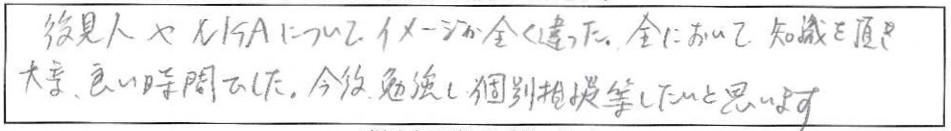 後見人やNISAについてイメージが全く違った。全において知識を頂き
大幸、良い時間でした。今後、勉強し個別相談等したいと思います